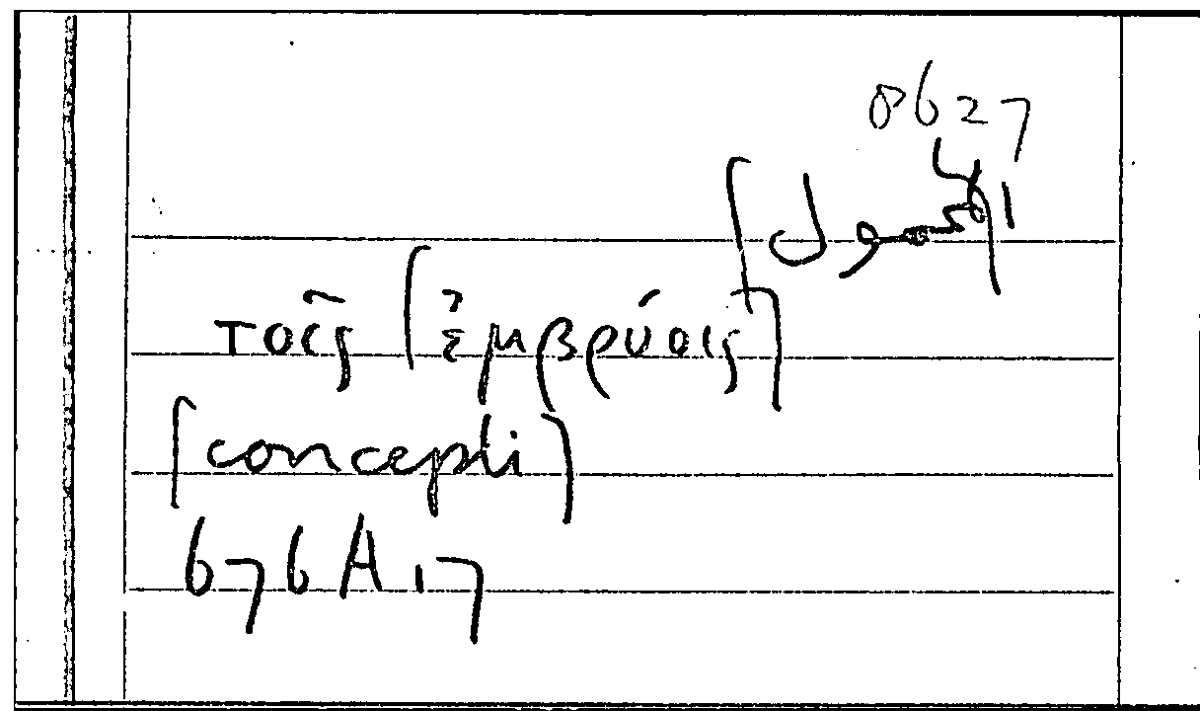 0627
τοῖς [ἐμβρύοις]
[concepti]
676A17